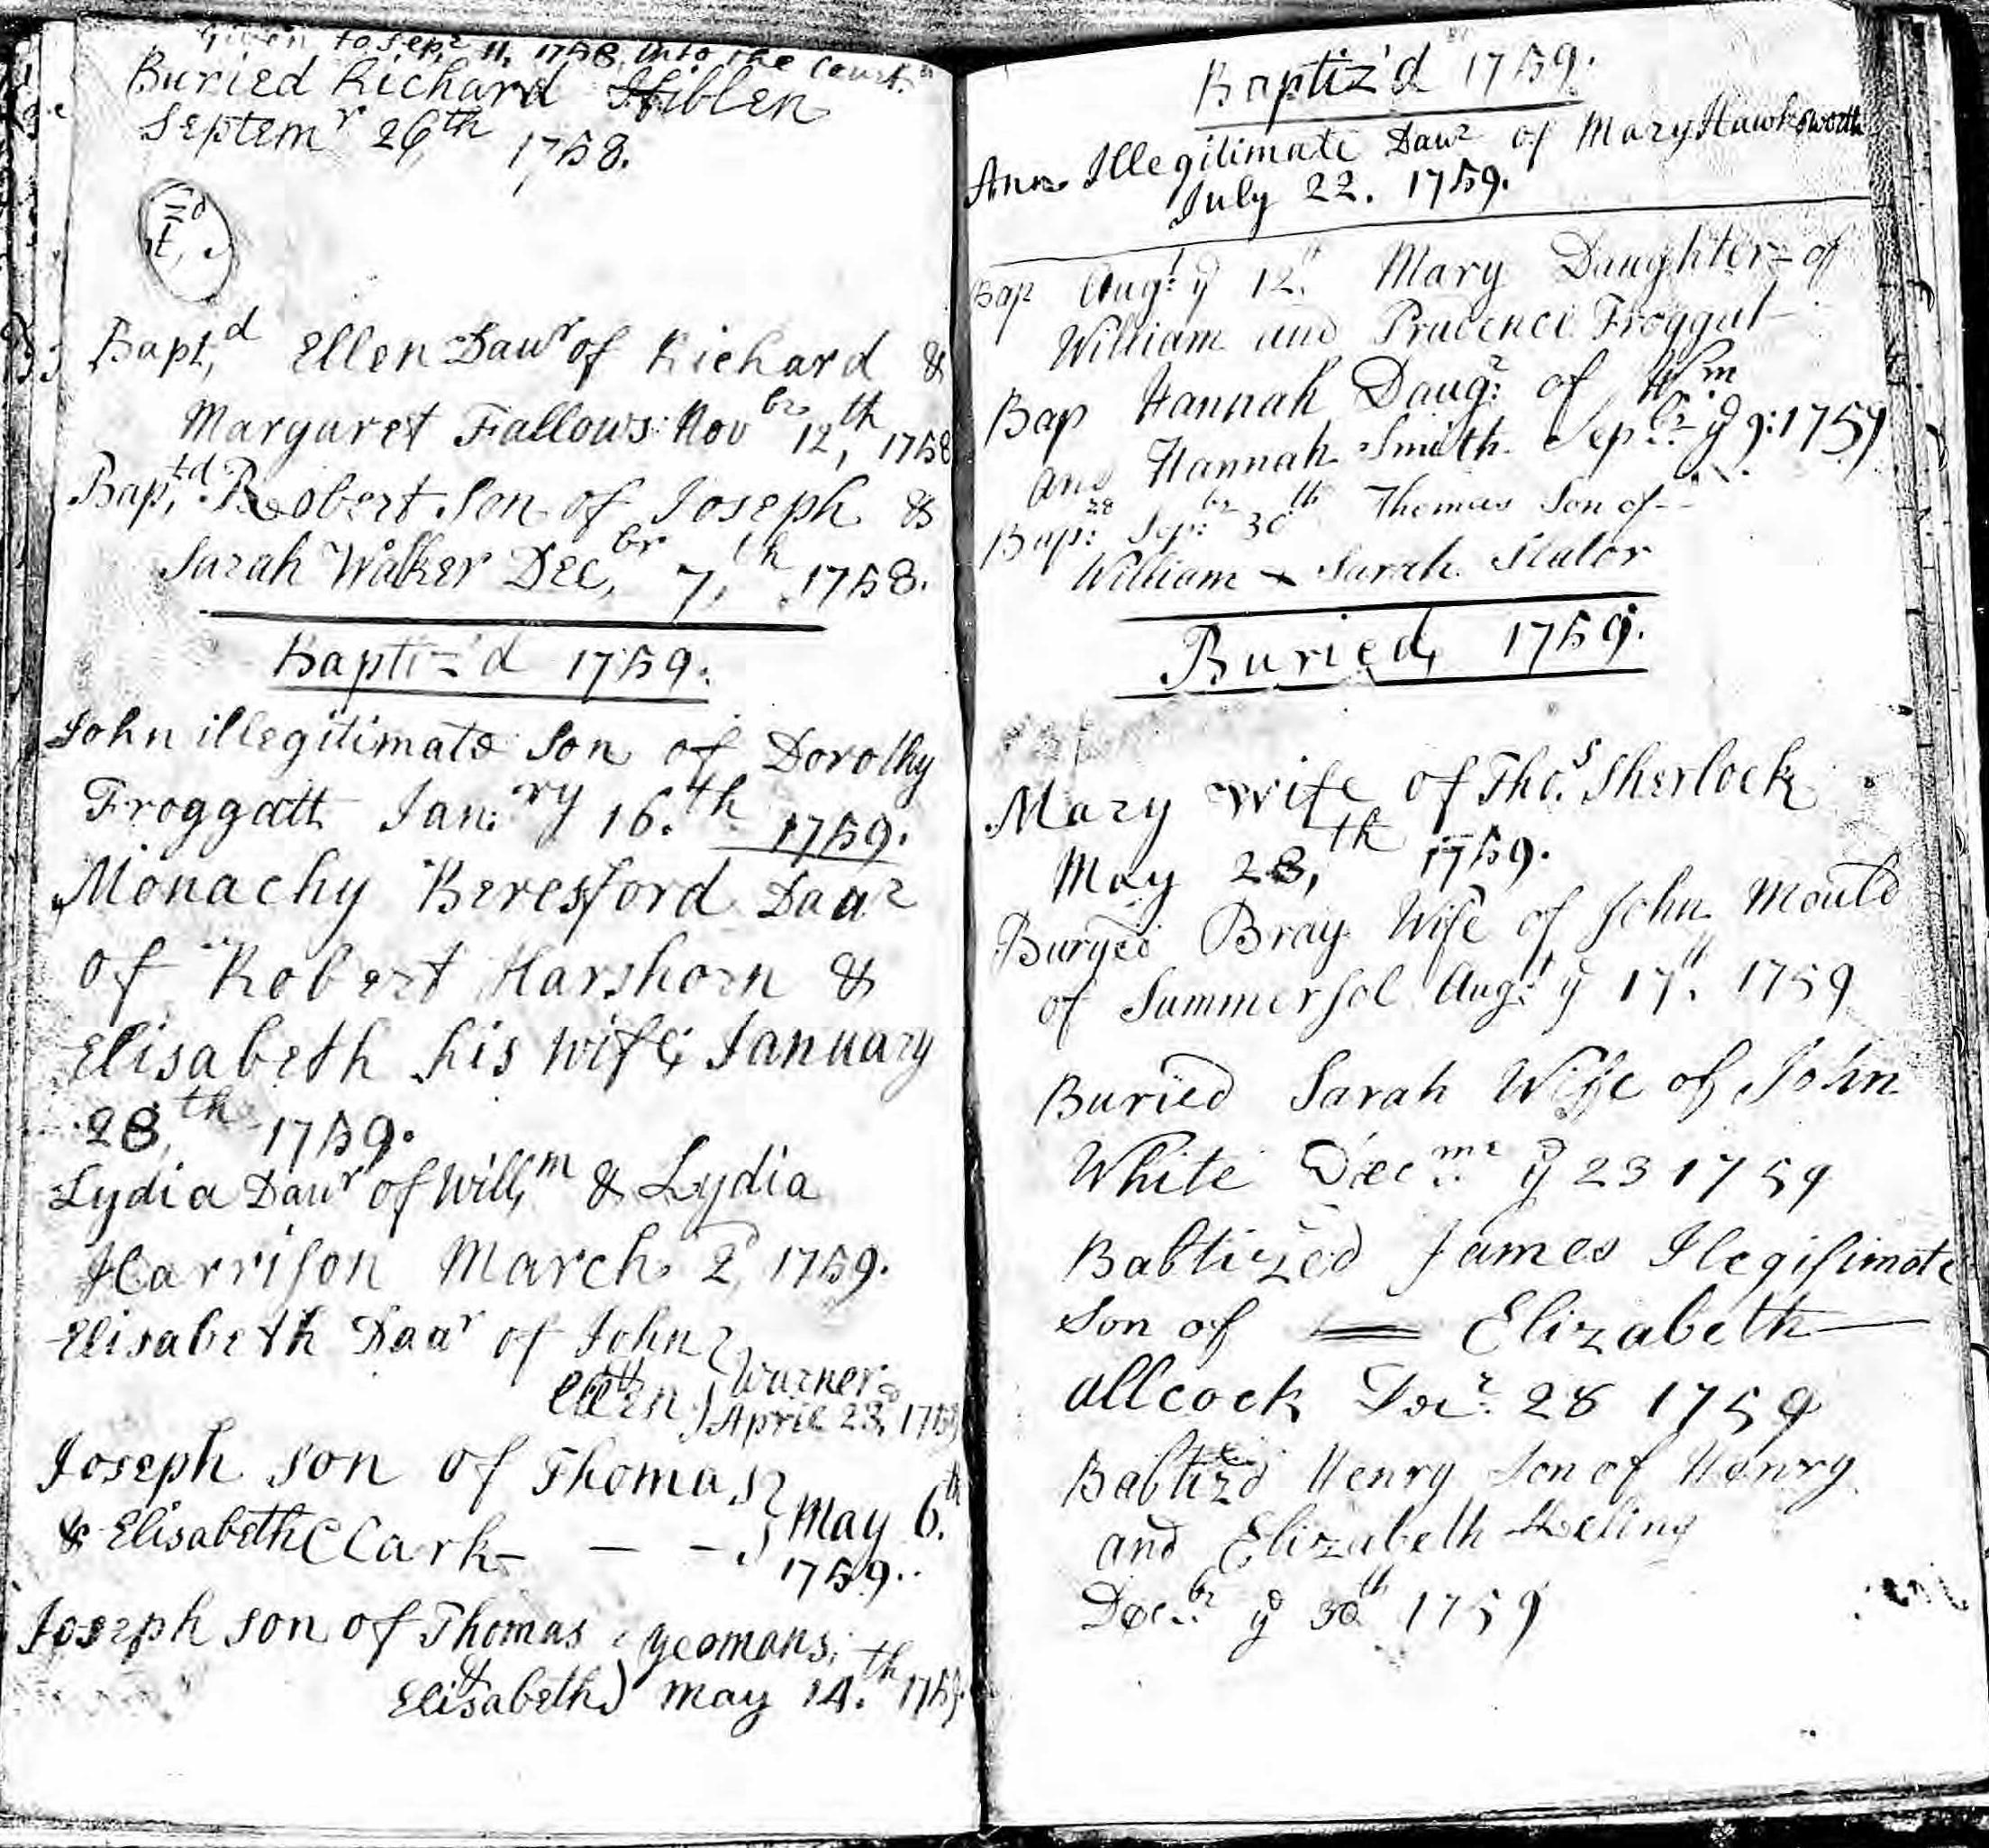 Given to Sepr 11. 1758. into the Court.
Buried Richard Hiblen
Septemr 26th 1758.
Bapt,d Ellen Dawr of Richard &
Margaret Fallows Novbr 12,th 1758
Bap,td Robert Son of Joseph &
Sarah Walker Dec,br 7,th 1758.
Baptiz'd 1759.
John illegitimate Son of Dorothy
Froggatt Jan:ry 16.th 1759.
Monachy Beresford Daur
of Robert Harshorn &
Elisabeth his wife, January
28,th 1759.
Lydia Dawr of Will,m & Lydia
Harrison March 2d, 1759.
Elisabeth Daar of John
Ellen Warner
April 23d, 1759
Joseph Son of Thomas
& Elisabeth Clark - - - May 6.th
1759.
Joseph son of Thomas yeomans,
& Elisabeth May 14.th 1759.
Baptiz'd 1759.
Ann Illegitimate Dawr of Mary Hawksworth
July 22. 1759.
Bap Augt: ye 12th. Mary Daughter of
William and Prudence Froggat
Bap Hannah Daugr: of Wm
and Hannah Smith Sepbr: ye 9: 1759
28
Bap: Sep:br 30th Thomas Son of --
William & Sarah Slator
Buried, 1759.
Mary wife of Tho.s Sherlock
May 28,th 1759.
Buryed Bray Wife of John Mould
of Summersol Augt: ye 17th. 1759
Buried Sarah Wife of John
White Decmr: ye 23 1759
Babtized James Ilegisimate
Son of Elizabeth
allcock Decr: 28 1759
Babtizd Henry Son of Henry
and Elizabeth Keeling
Decbr: ye 30th 1759